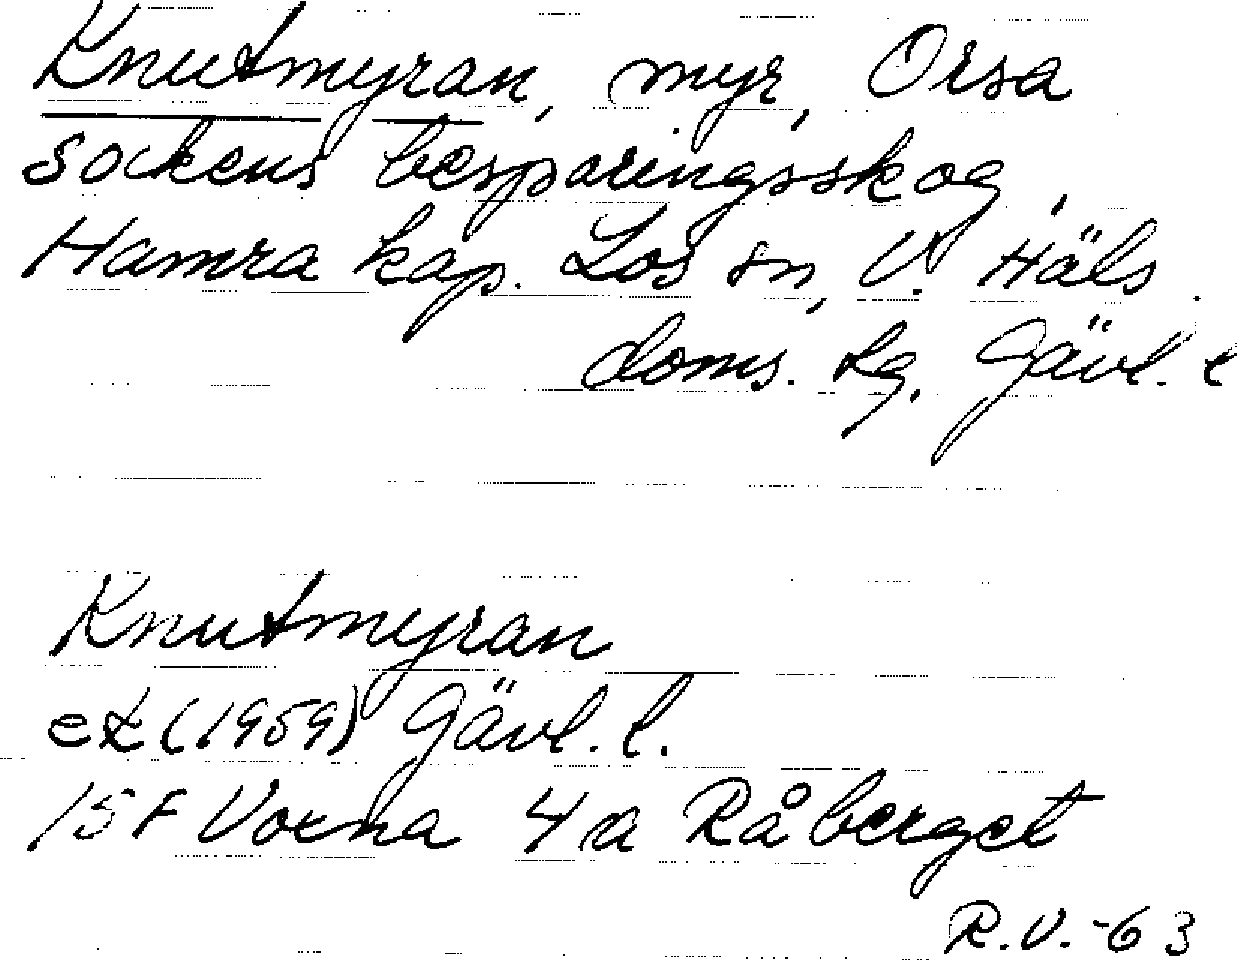 Knutmyran, myr, Orsa
sockens besparingsskog,
Hamra kap. Los sn, V. Häls.
doms. tg. Gävl. l
Knutmyran
ek (1959) Gävl. l.
15F Voxna 4a Råberget
R.V.-63